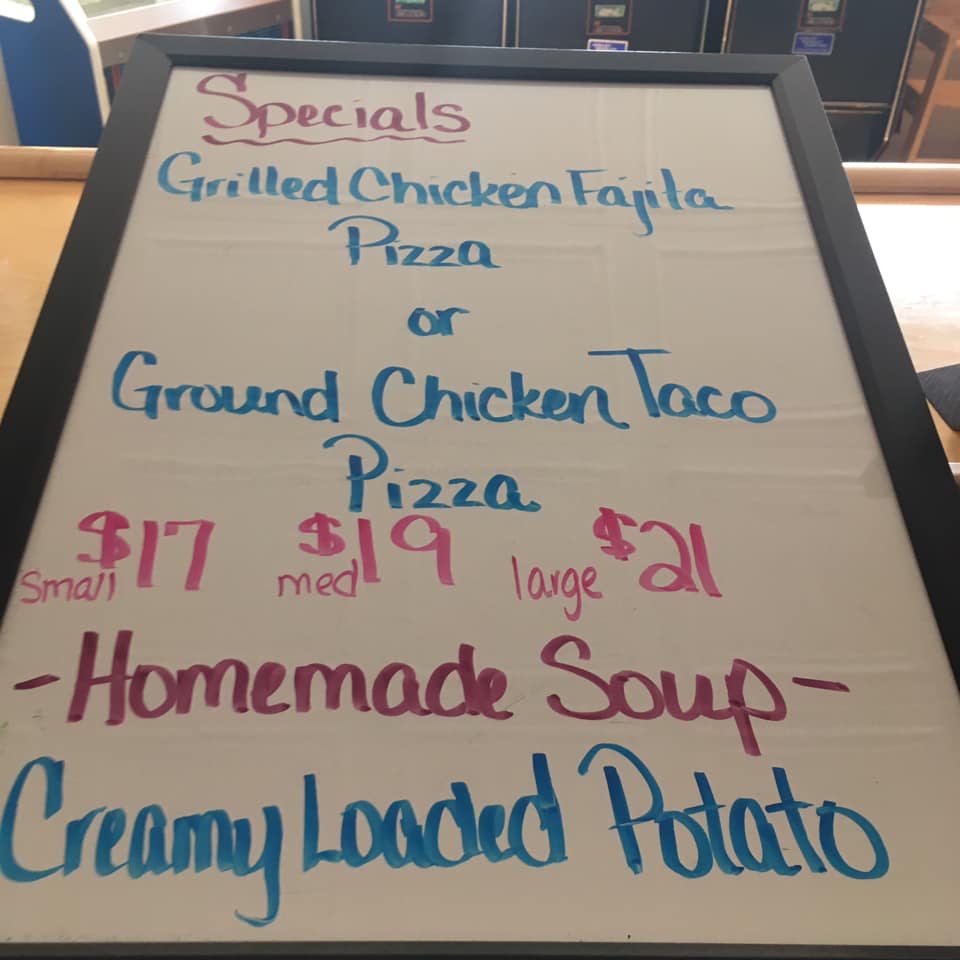 Specials
Grilled Chicken Fajita
Pizza
or
Ground Chicken Taco
Pizza
$17 $19 $21
small med large
-Homemade Soup-
Creamy Loaded Potato